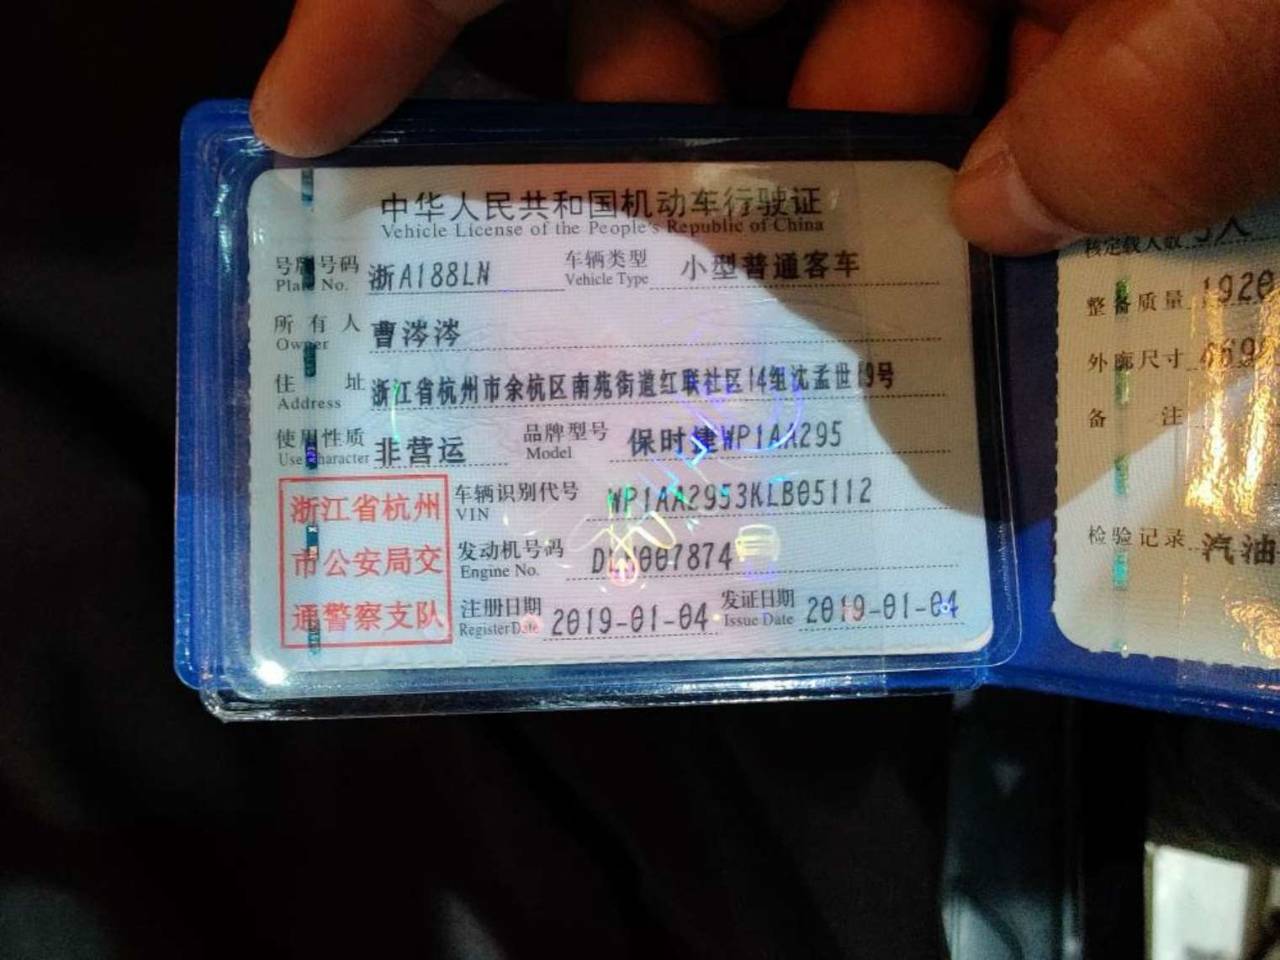 中华人民共和国机动车行驶证
Vehicle License of the People's Republic of China
号牌号码 浙A188LN 车辆类型 小型普通客车
Plate No. Vehicle Type
所有人 曹涔涔
Owner
住址 浙江省杭州市余杭区南苑街道红联社区14组沈孟世19号
Address
使用性质 非营运 品牌型号 保时捷WP1AA295
Use Character Model
浙江省杭州
市公安局交
通警察支队
车辆识别代号 WP1AA2953KLB05112
VIN
发动机号码 007874
Engine No.
注册日期 2019-01-04 发证日期 2019-01-04
Register Date Issue Date
核定载人数 5人
整备质量 1920
外廓尺寸
备注
检验记录 汽油